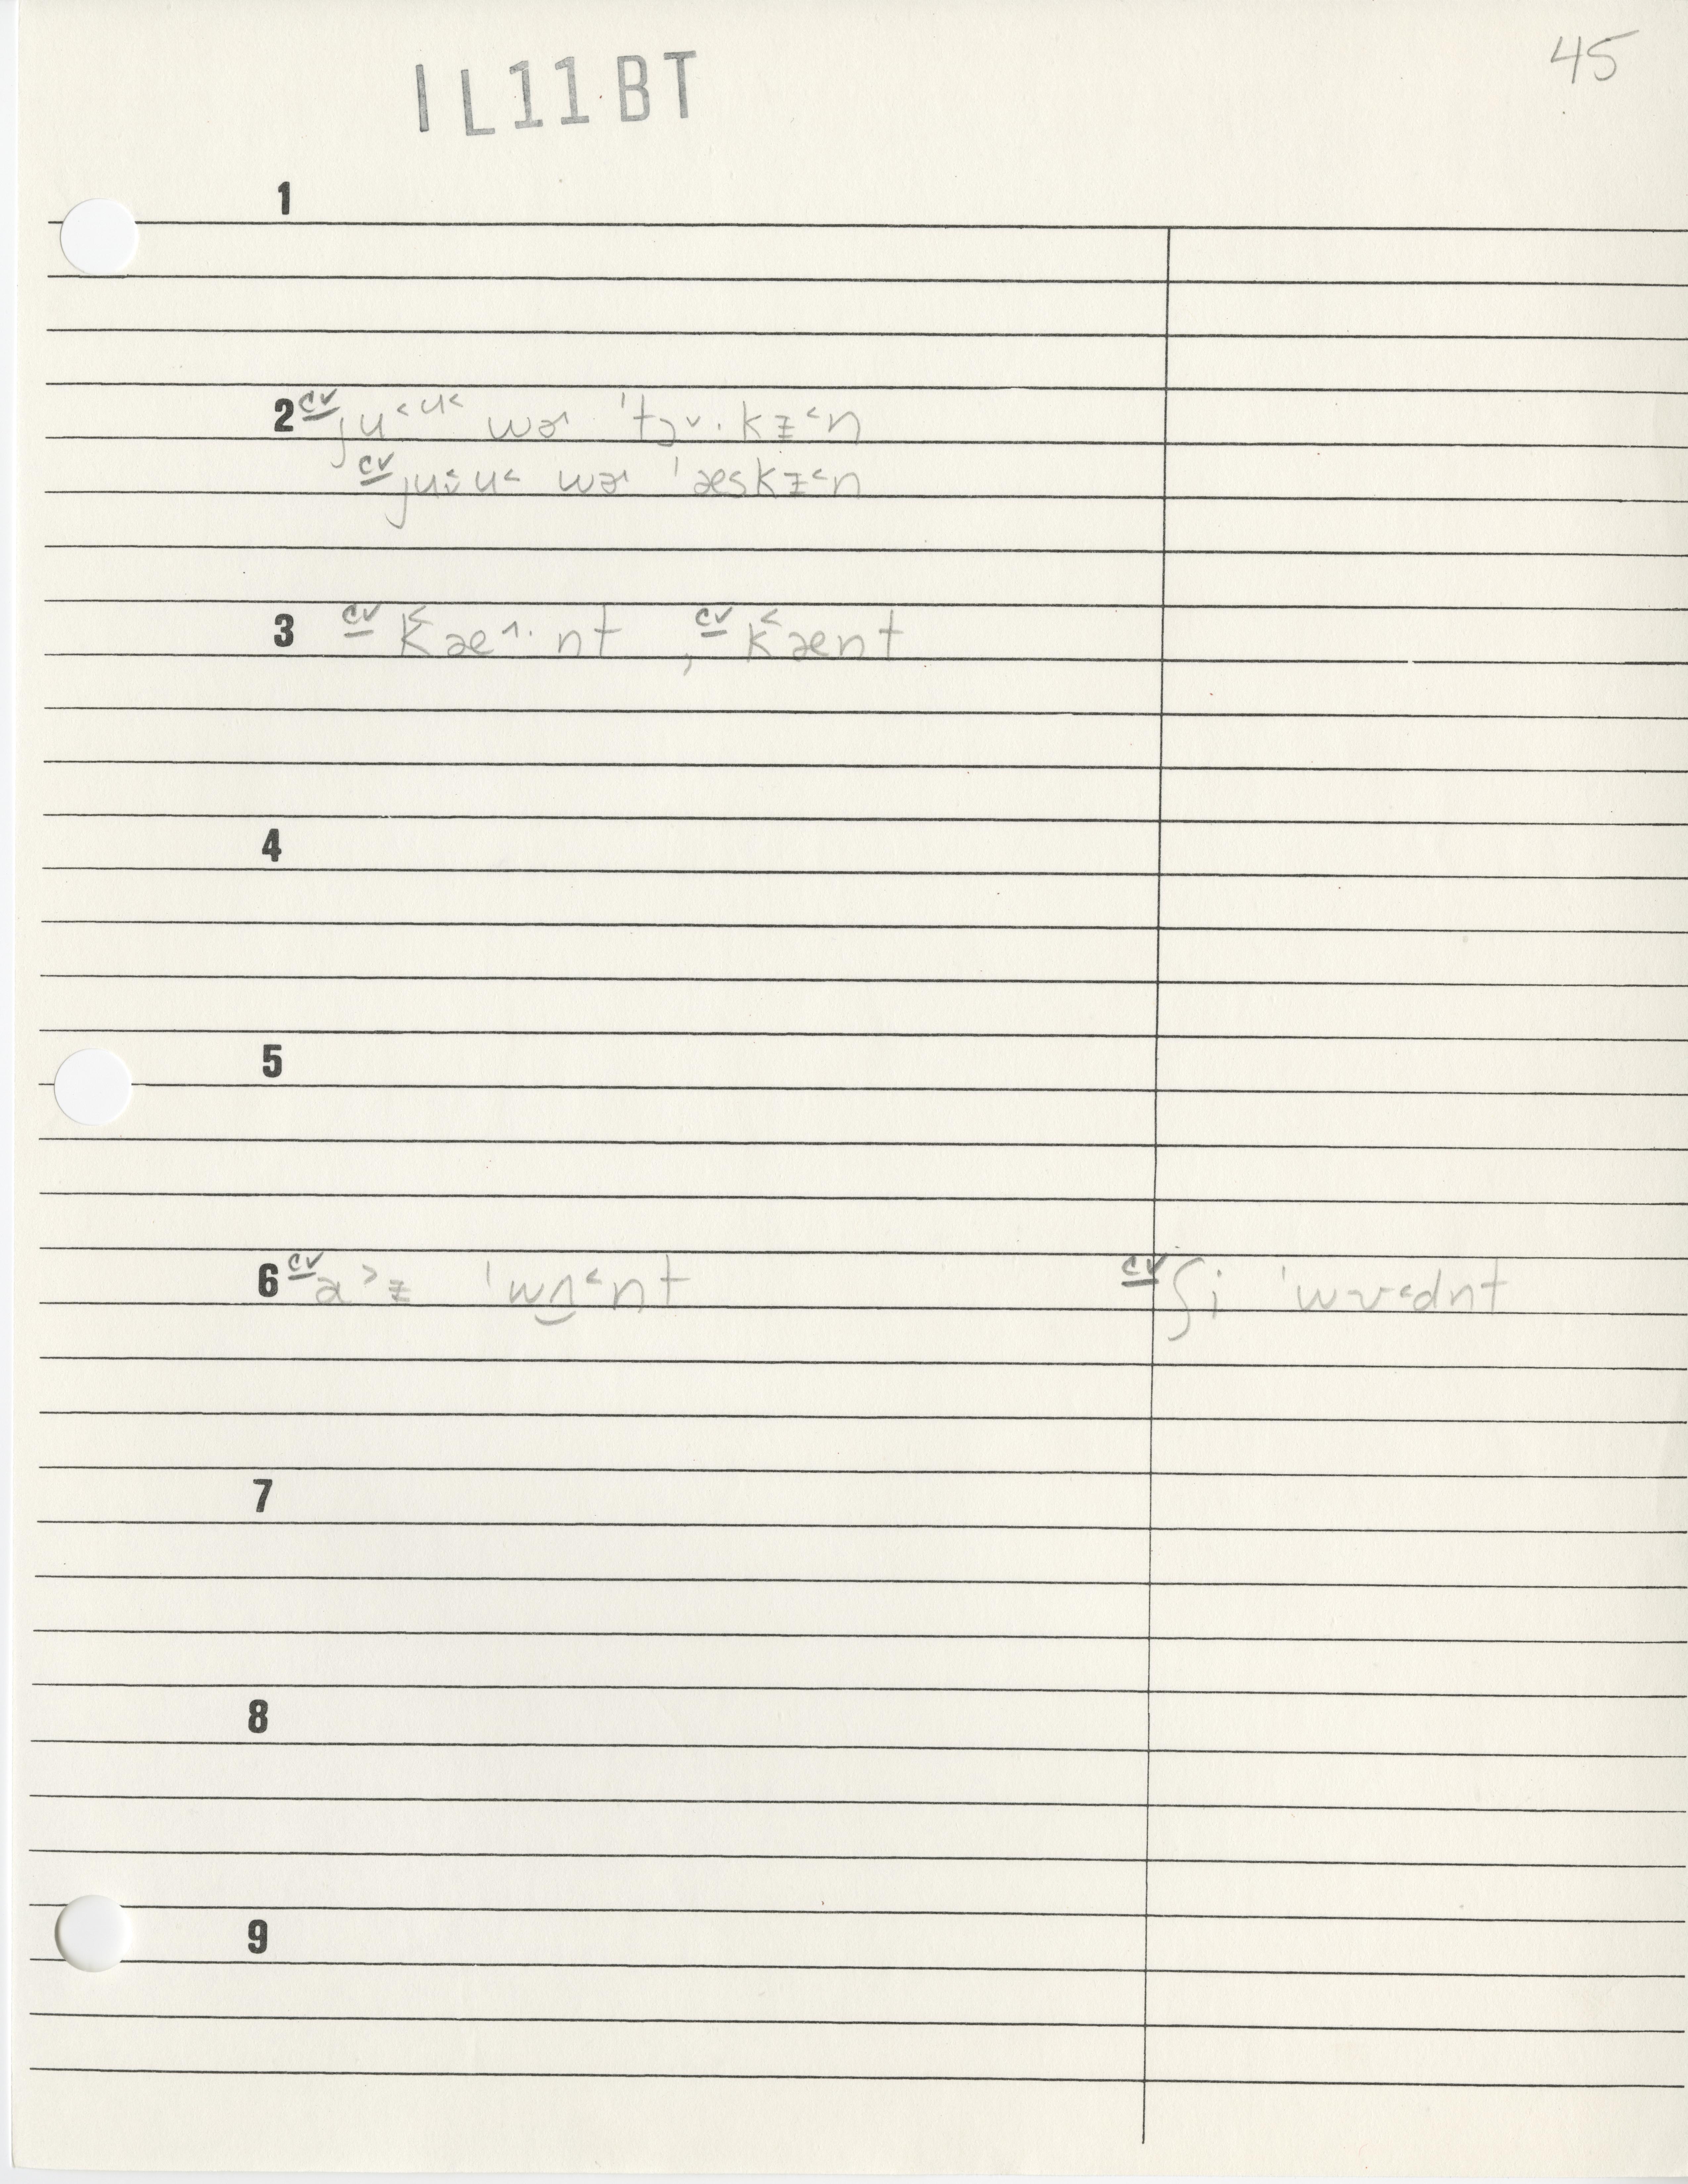 45
IL11BT
1
2 cv ju˂u˂ wɚ 'tɔ˅·kɪ̵˂n
cv ju˂i̯u˂ wɚ 'æskɪ̵˂n
3 cv k˂æ˄·nt , cv k˂ænt
4
5
6 cv a˃ɪ̵ 'wʌ̮˂nt cv ʃi 'wɤ˂dnt
7
8
9